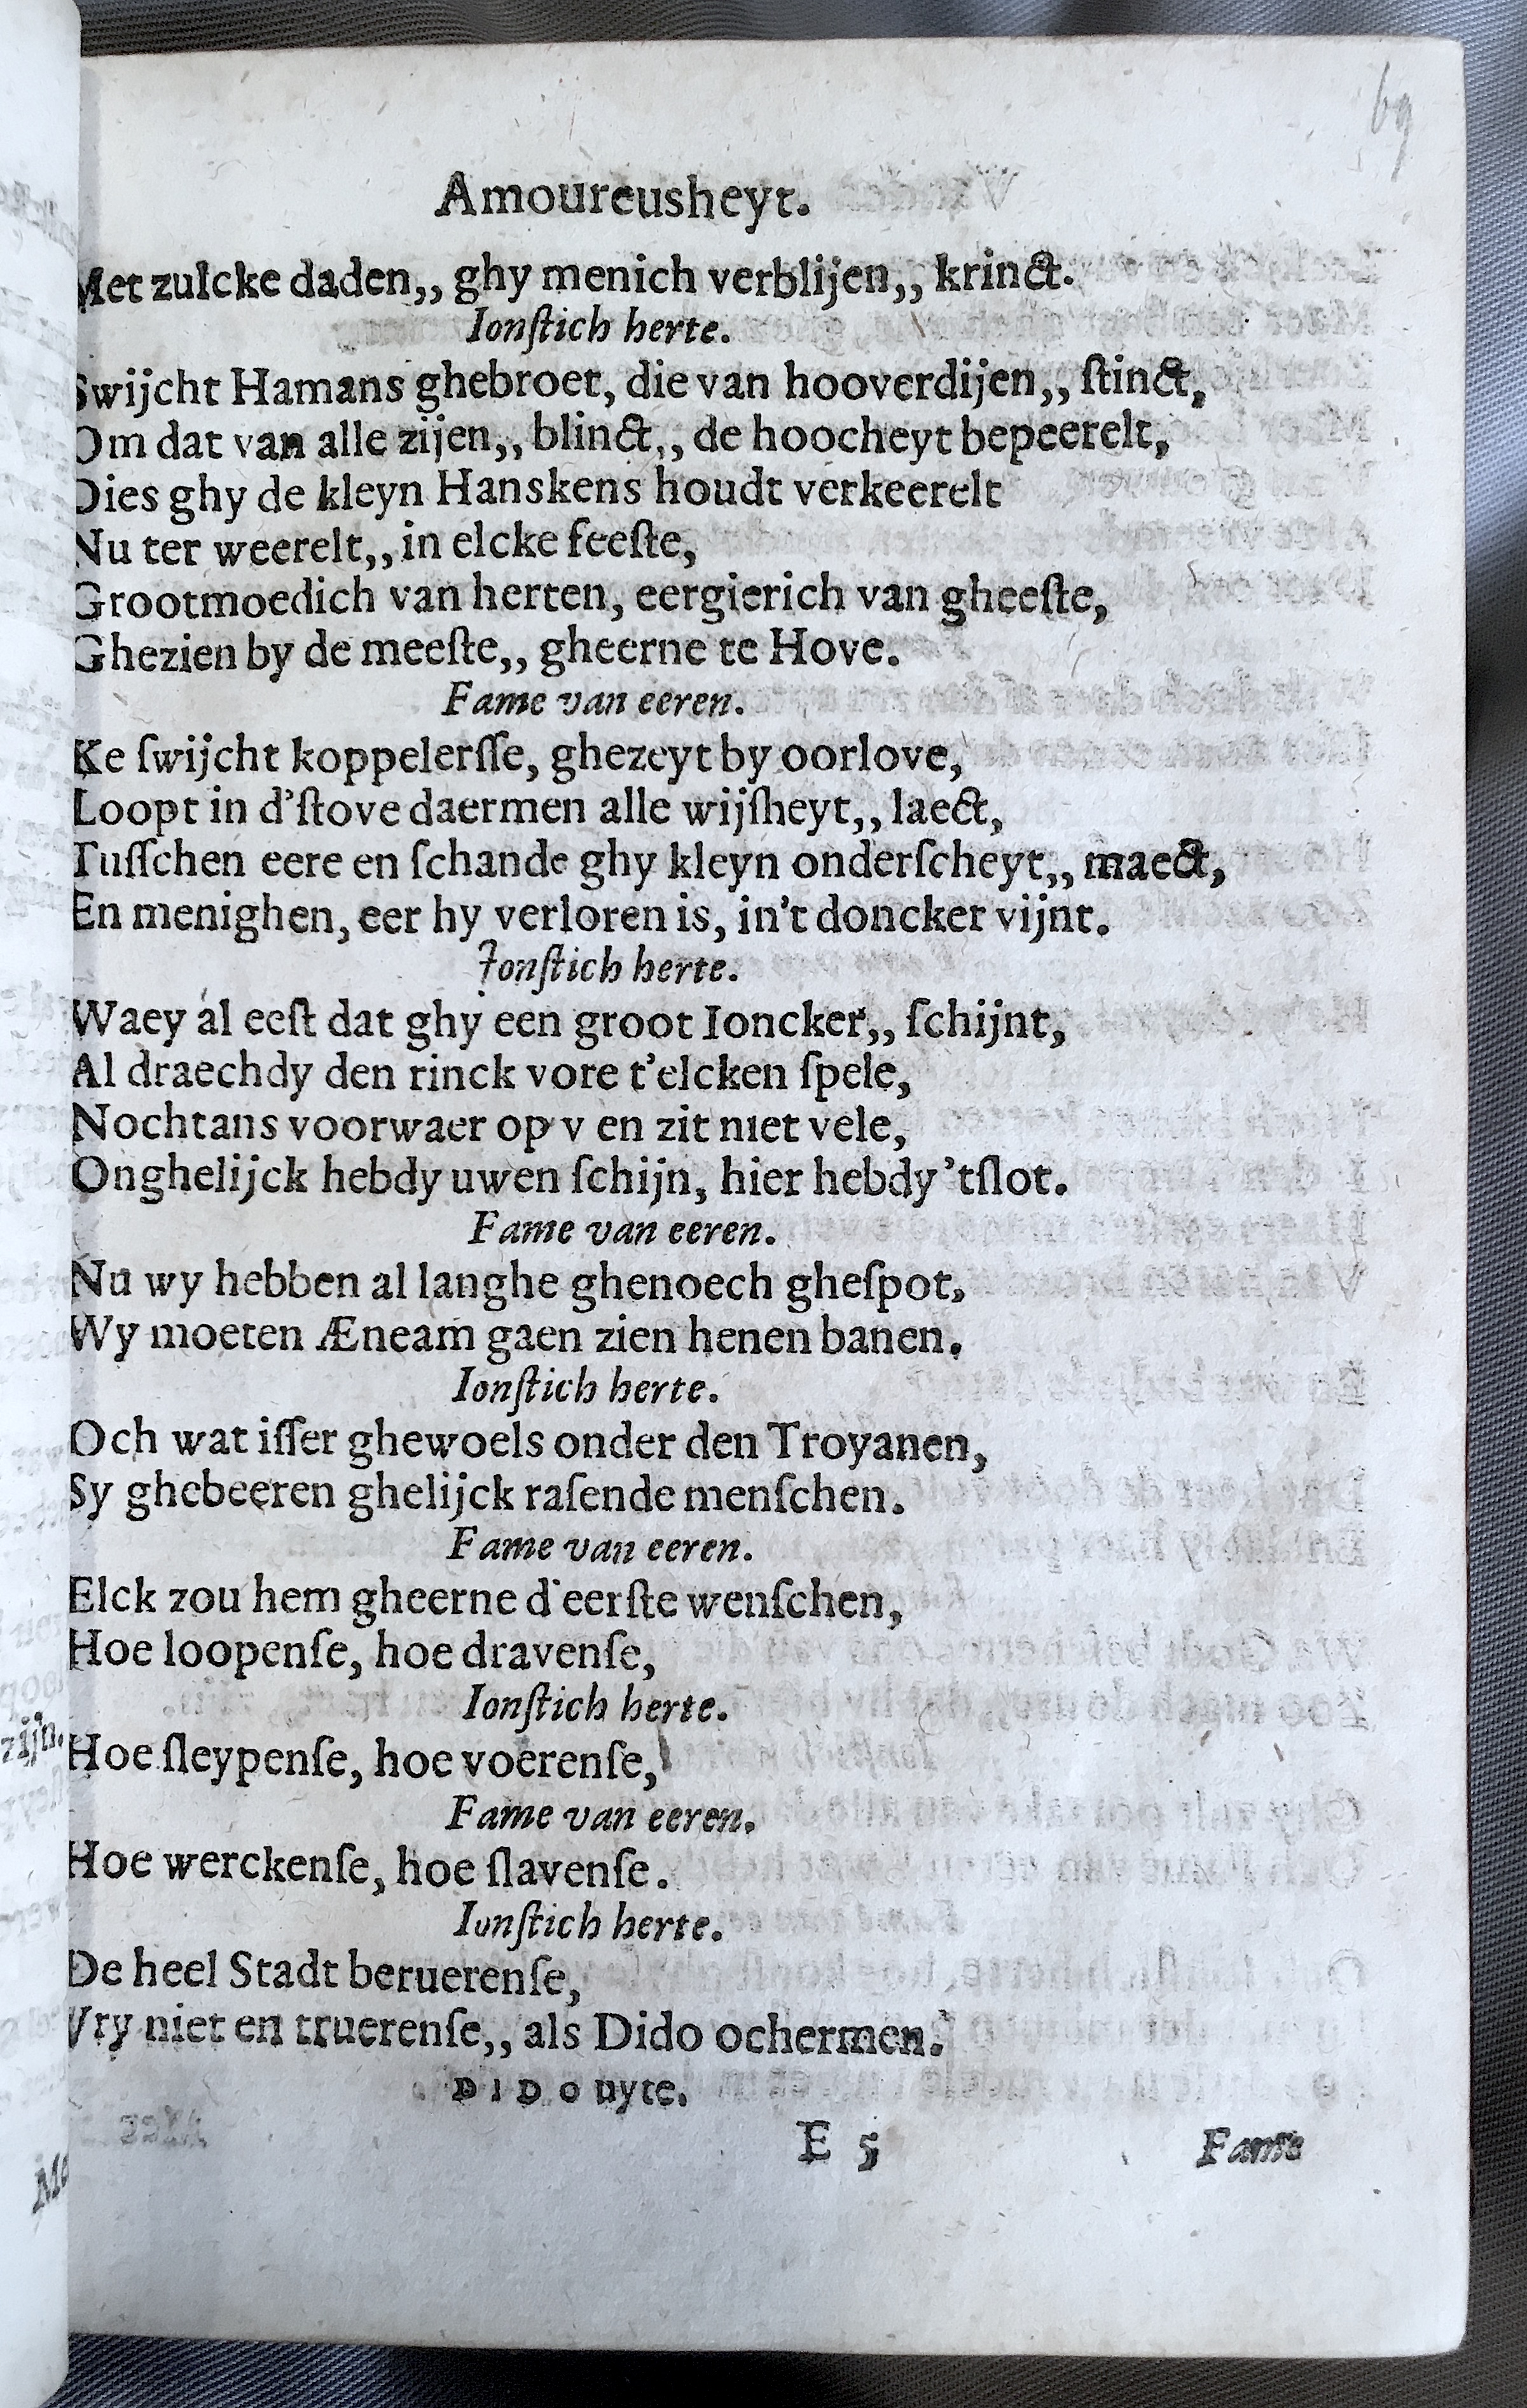 69
Amoureusheyt.
Met zulcke daden,, ghy menich verblijen,, krinct.
Ionſtich herte.
Swijcht Hamans ghebroet, die van hooverdijen,, ſtinct,
Om dat van alle zijen,, blinct,, de hoocheyt bepeerelt,
Dies ghy de kleyn Hanskens houdt verkeerelt
Nu ter weerelt,, in elcke feeſte,
Grootmoedich van herten, eergierich van gheeſte,
Ghezien by de meeſte,, gheerne te Hove.
Fame van eeren.
Ke ſwijcht koppelerſſe, ghezeyt by oorlove,
Loopt in d'ſtove daermen alle wijſheyt,, laect,
Tuſſchen eere en ſchande ghy kleyn onderſcheyt,, maect,
En menighen, eer hy verloren is, in't doncker vijnt.
Ionſtich herte.
Waey al eeſt dat ghy een groot Ioncker,, ſchijnt,
Al draechdy den rinck vore t'elcken ſpele,
Nochtans voorwaer op v en zit niet vele,
Onghelijck hebdy uwen ſchijn, hier hebdy 'tſlot.
Fame van eeren.
Nu wy hebben al langhe ghenoech gheſpot,
Wy moeten Æneam gaen zien henen banen.
Ionſtich herte.
Och wat iſſer ghewoels onder den Troyanen,
Sy ghebeeren ghelijck raſende menſchen.
Fame van eeren.
Elck zou hem gheerne d'eerſte wenſchen,
Hoe loopenſe, hoe dravenſe,
Ionſtich herte.
zijn. Hoe ſleypenſe, hoe voerenſe,
Fame van eeren.
Hoe werckenſe, hoe ſlavenſe.
Ionſtich herte.
De heel Stadt beruerenſe,
Vry niet en truerenſe,, als Dido ochermen.
DIDO uyte.
E 5 Fame